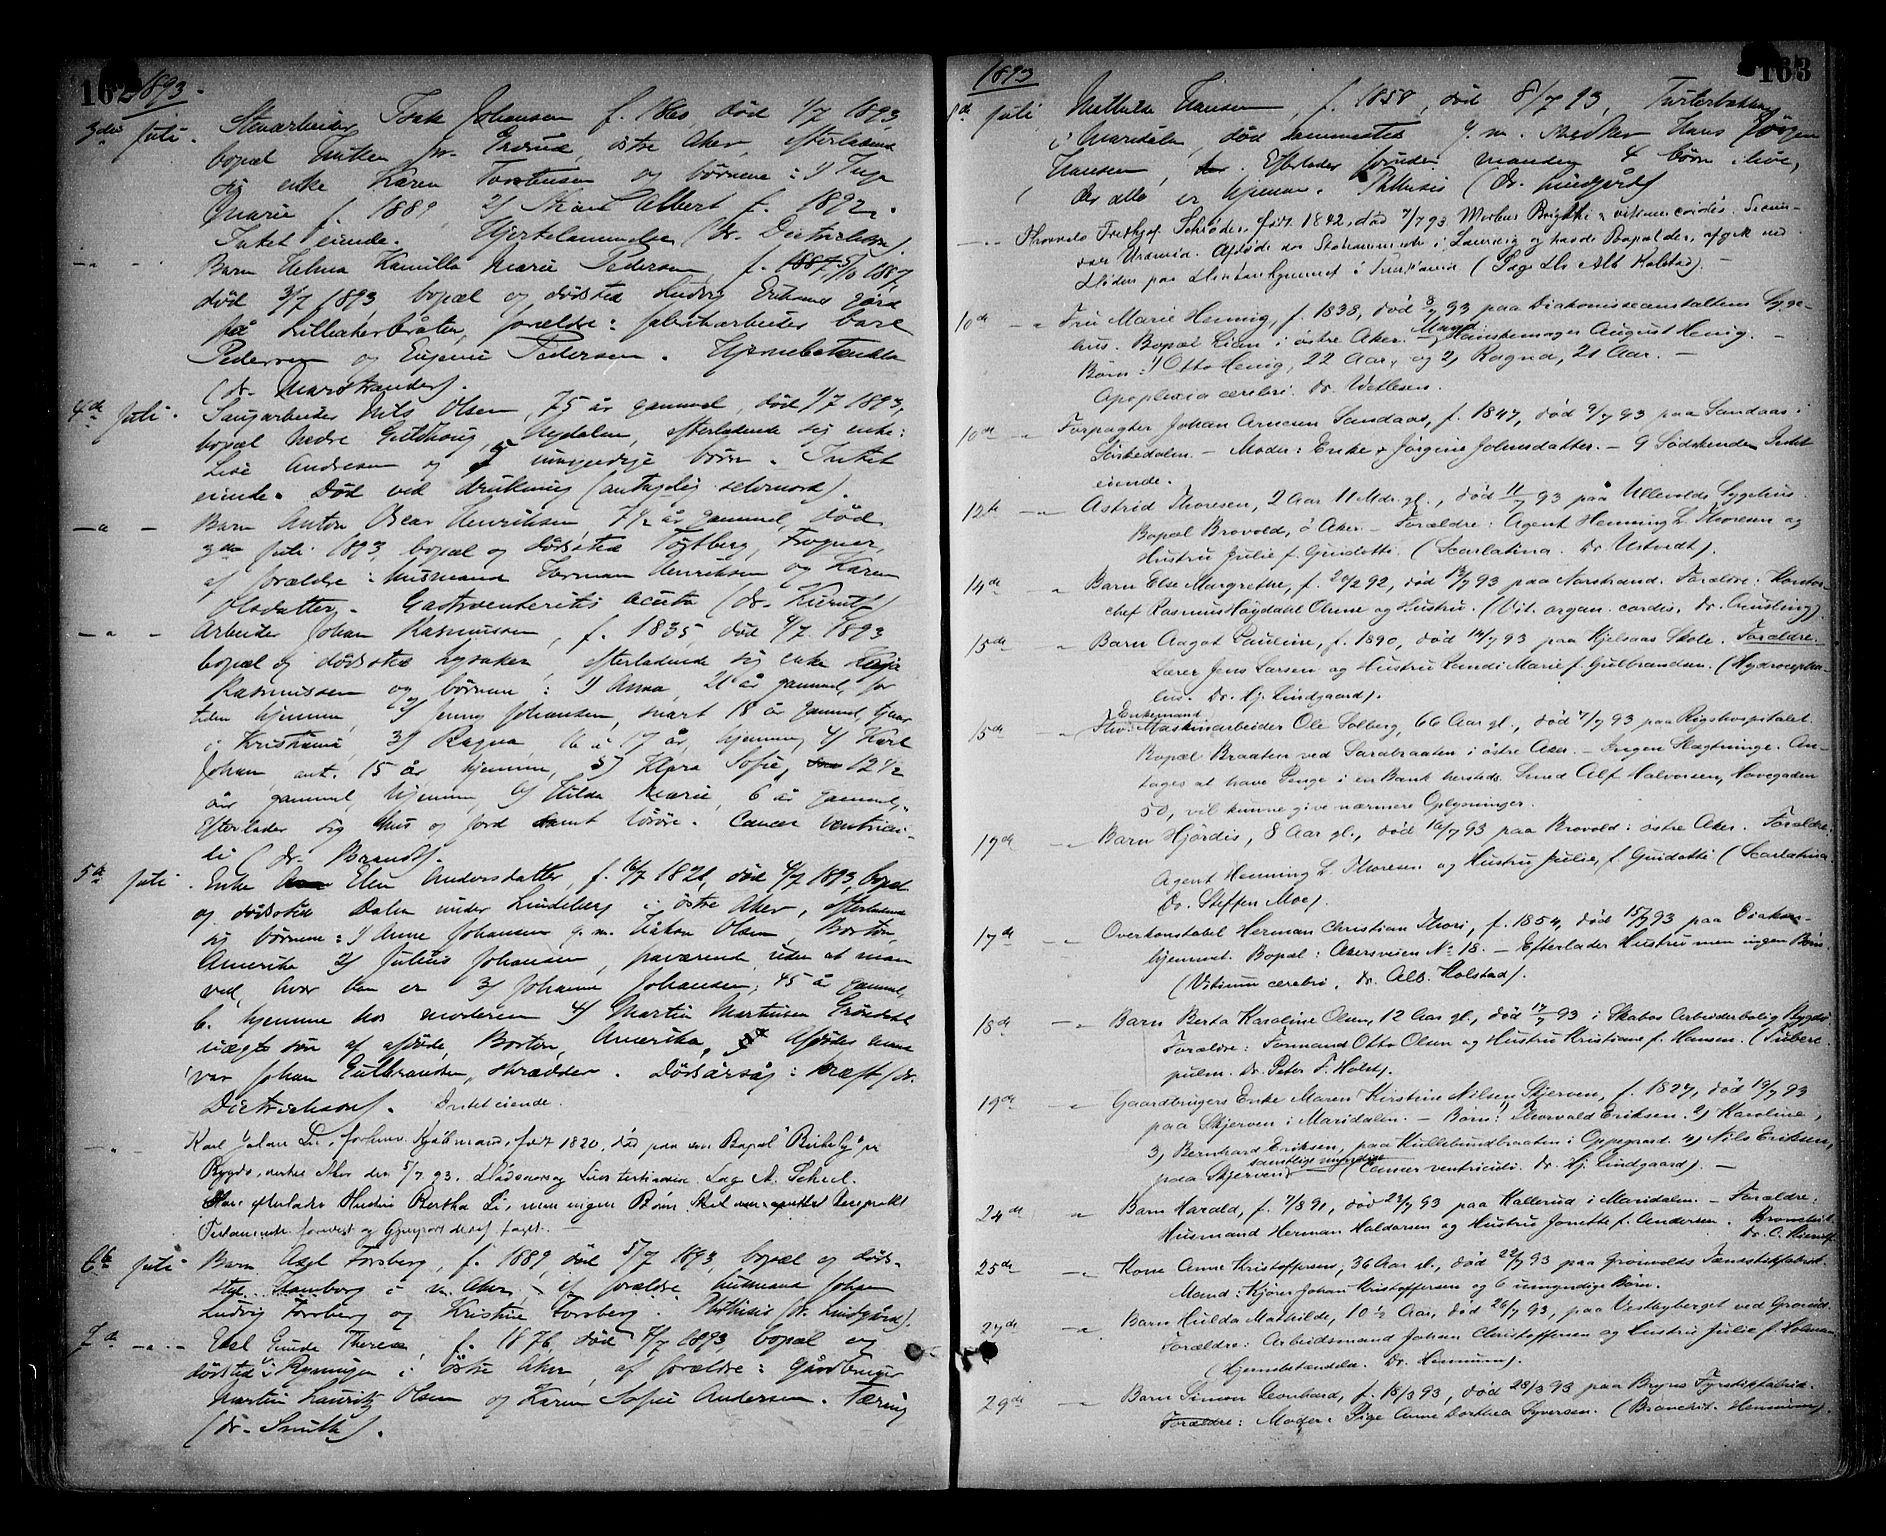 162
1893.
3die Juli. Stenarbeider Isak Johansen f. 1860 død 1/7 1893,
bopæl Tritten pr. Grorud, østre Aker, efterladende
sig enke Karen Torstensen og børnene: 1) Inga
Marie f. 1889 2) Albert f. 1892.
Intet eiende. Hjertelammelse (dr. Dietrichson).
— " — Barn Helma Kamilla Marie Pedersen, f. 1887,
død 3/7 1893, bopæl og dødssted Ludvig Eriksens gård
på Lilleakerbråten, forældre: fabrikarbeider
Pedersen og Eugenie Pedersen. Hjernebetændelse
(dr. Marstrander).
4de Juli. Saugarbeider Nils Olsen, 75 år gammel, død 1/7 1893,
bopæl Nedre Gulthoug, Nydalen, efterladende sig enke:
Lise Andresen og 5 umyndige børn. Intet
eiende. Død ved drukning (antagelig selvmord).
— " — Barn Anton Oscar Henriksen, 7 1/2 år gammel, død
3die Juli 1893, bopæl og dødssted Togtberg, Frogner,
af forældre: husmand Herman Henriksen og Karen
Olsdatter. Gastroenteritis acuta (dr. Kierulf)
— " — Arbeider Johan Rasmussen, f. 1835, død 4/7 1893
bopæl og dødssted Lysaker, efterladende sig enke
Rasmussen og børnene: 1) Anna, 21 år gammel, for
tiden hjemme, 2) Jenny Johansen, snart 18 år gammel,
i Kristiania, 3) Ragna, 16 à 17 år, hjemme, 4) Karl
Johan ant. 15 år hjemme, 5) Klara Sofie, 12 1/2
år gammel, hjemme, 6) Hilda Marie, 6 år gammel,
Efterlader sig hus og jord samt løsøre. Cancer ventricu-
li (dr. Brandt).
5te Juli. Enke Elen Andersdatter, f. 16/7 1821, død 4/7 1893, bopæl
og dødssted Dalen under Lindeberg i østre Aker, efterladende
sig børnene: 1) Anne Johansen g. m. Håkon Olsen, Boston,
Amerika 2) Julius Johansen, paværende, uden at man
ved, hvor han er 3) Johanne Johansen, 45 år gammel,
f. hjemme hos moderen 4) Martin Martinsen Grøndahl
uægte søn af afdøde, Boston, Amerika, Afdødes mand
var Johan Gulbrandsen, skrædder. Dødsårsag: kræft (dr.
Dietrichson). Intet eiende.
— " — Karl Johan Li, forhenv. Kjøbmand, født 1820, død paa sin Bopæl "Birkely" pr
Bygdø, vestre Aker den 5/7 93. Dødsaarsag Lues tertiaria. Læge A. Scheel.
Han efterlader Hustru Bertha Li, men ingen Børn. Skal være oprettet Reciprokt
Testamente forevist og Gjenpart deraf taget.
6te Juli Barn Axel Forsberg, f. 1889, død 5/7 1893, bopæl og døds-
sted Stamborg i v. Aker, af forældre husmand Johan
Ludvig Forsberg og Kristine Forsberg. Phthisis (dr. Lindgård).
7de — " — Gunde Therese, f. 1876, død 4/7 1893, bopæl og
dødssted Rygningen i østre Aker, af forældre: Gårdbruger
Martin Lauritz Olsen og Karen Sofie Andersen. Tæring
(dr. Smith).
163
1893
8de Juli Mathilde Hansen, f. 1858, død 8/7 93, Turterbakken
i Maridalen, død sammesteds g. m. snedker Hans Jørgen
Hansen, Efterlader foruden manden 4 børn i live,
der alle er hjemme. Phthisis (dr. Lindgård)
— " — Thorvald Fredhjof Schrøder, født 1842, død 7/7 93 Morbus Brighti & vitium cordis.
Døden paa (Læge Dr Alb Holstad). —
10de — " Fru Marie Hennig, f. 1838, død 8/7 93 paa Diakonisseanstaltens Syge-
hus. Bopæl Lian i østre Aker. — Mand: Hanskemager August Henig. —
Børn: 1) Otto Henig, 22 Aar, og 2, Ragna, 21 Aar. —
Apoplexia cerebri. Dr. Wetlesen.
10de — " — Forpagter Johan Arnesen Sandaas, f. 1847, død 9/7 93 paa Sandaas i
Sørkedalen. — Moder: Enke Jørgine Johnsdatter. — 9 Sødskende. Intet
eiende.
12te — " — Astrid Thoresen, 2 Aar 11 Mdr. gl., død 11/7 93 paa Ullevolds Sygehus.
Bopæl Brovold, ø Aker. — Forældre: Agent Henning L. Thoresen og
Hustru Julie f. Guidotti. (Scarlatina. Dr. Ustvedt).
14de — " Barn Else Margrethe, f. 20/2 92, død 13/7 93 paa Norstrand. Forældre: Kontor-
chef Rasmus Høydahl Ohme og Hustru. (Vit. organ. cordis, Dr. Quisling).
15de " Barn Aagot Pauline, f. 1890, død 14/7 93 paa Kjelsaas Skole. Forældre:
Lærer Jens Larsen og Hustru Lundi Marie f. Gulbrandsen. (Hydrocepha-
lus. Dr. Hj. Lindgaard).
15de — " Enkemand
Maskinarbeider Ole Solberg, 66 Aar gl., død 7/7 93 paa Rigshospitalet.
Bopæl Braaten ved Sarabraaten i østre Aker. — Ingen Slægtninge. An-
tages at have Penge i en Bank hersteds. Smed Alf Halvorsen, Havegaden
50, vil kunne give nærmere Oplysninger.
17de — " Barn Hjørdis, 8 Aar gl., død 16/7 93 paa Brovold i østre Aker. Forældre:
Agent Henning L. Thoresen og Hustru Julie, f. Guidotti (Scarlatina
Dr. Steffen Moe).
17de — " Overkonstabel Herman Christian Thori, f. 1854, død 15/7 93 paa Diakon-
hjemmet. Bopæl: Akersveien No 18. — Efterlader Hustru men ingen Børn
(Vitium cerebri, dr. Alb. Holstad).
18de — " Barn Berta Karoline Olsen, 12 Aar gl., død 17/7 93 i Skabos Arbeiderbolig Bygdø
Forældre: Formand Otto Olsen og Hustru Kristiane f. Hansen. (Tuberc.
pulm. Dr. Peter F. Holst).
19de " Gaardbrugers Enke Maren Kirstine Nilsen Skjerven, f. 1827, død 19/7 93
paa Skjerven i Maridalen. — Børn: 1, Thorvald Eriksen. 2) Karoline,
3, Bernhard Eriksen, paa Kullebundbraaten i Oppegaard. 4) Nils Eriksen,
paa Skjerven samtlige myndige (Cancer ventriculi. Dr. Hj. Lindgaard). —
24de " Barn Harald, f. 7/8 91, død 22/7 93 paa Hallerud i Maridalen. — Forældre:
Husmand Herman Haldorsen og Hustru Jonette f. Andersen. Bronchit.
Dr. C. Kierulf
25de — " Kone Anne Kristoffersen, 36 Aar gl., død 22/7 93 paa Grønvolds Tændstikfabrik.
Mand: Kjører Johan Kristoffersen og 6 umyndige Børn.
27de — " Barn Hulda Mathilde, 10 1/2 Aar, død 26/7 93, paa Vestbyberget ved Grorud.
Forældre: Arbeidsmand Johan Christoffersen og Hustru Julie f. Holman
(Hjernebetændelse. Dr. Hennum).
29de — " Barn Simon Leonhard, f. 18/3 93, død 28/3 93 paa Bryns Fyrstikfabrik.
Forældre: Moder: Pige Anne Dorthea Syversen. (Bronchit. Hennum).